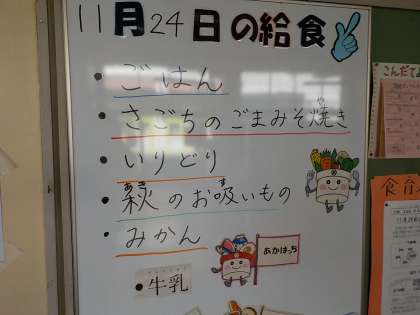 11月24日の給食
・ごはん
・さごちのごまみそ焼き
・いりどり
・萩のお吸いもの
・みかん
牛乳
あかはっち
こんだてよ
食育